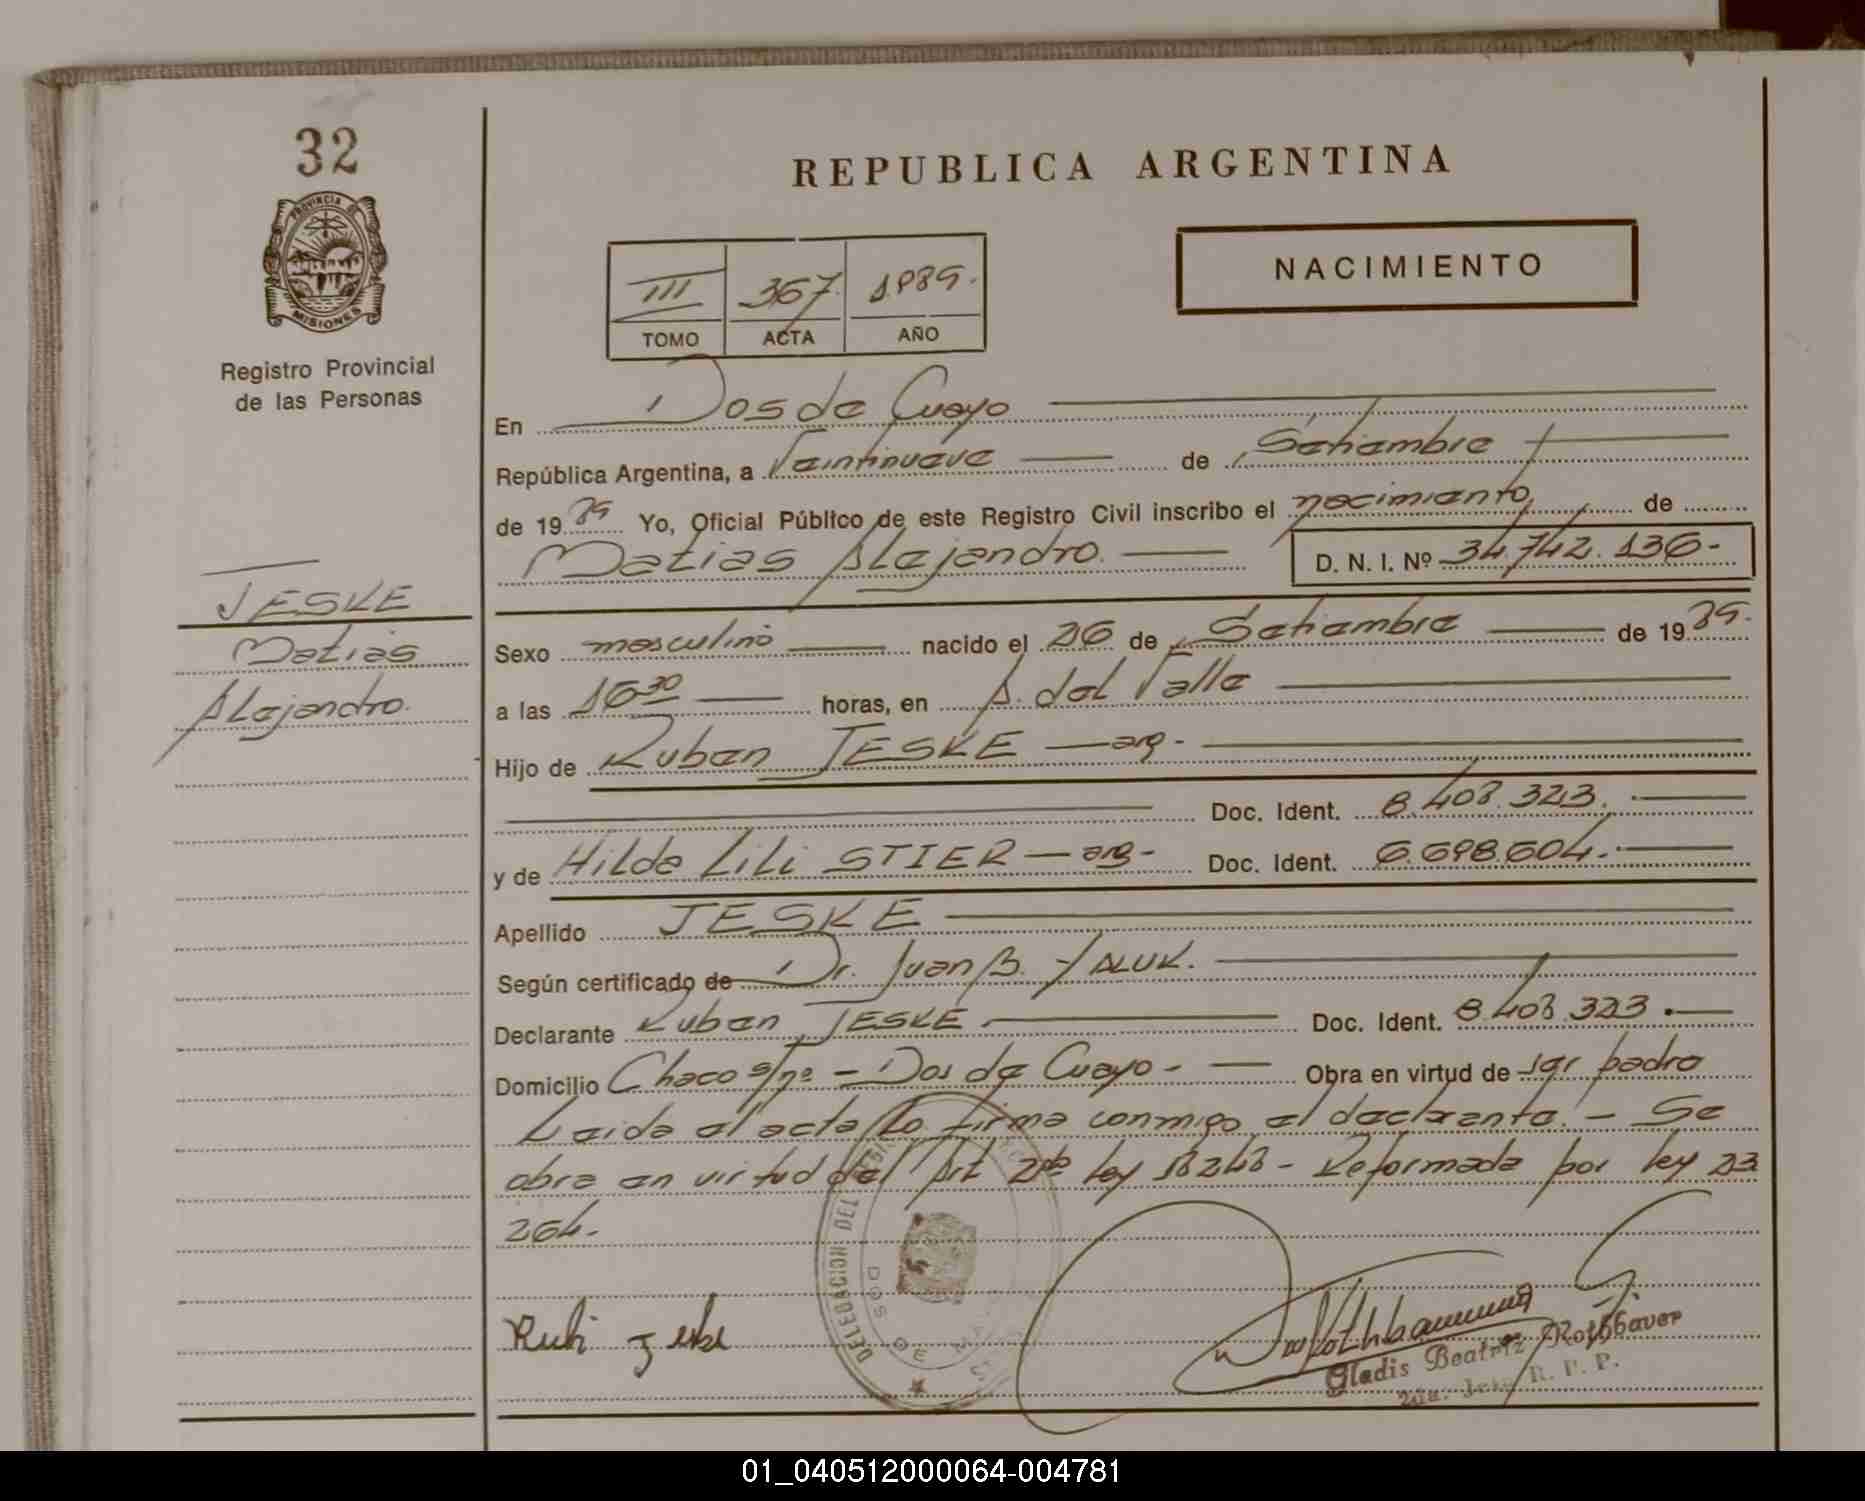 32
PROVINCIA DE
MISIONES
Registro Provincial
de las Personas
JESKE
Matias
Alejandro.
REPUBLICA ARGENTINA
NACIMIENTO
III 367 1989.
TOMO ACTA AÑO
En Dos de Mayo
República Argentina, a Veintinueve de Setiembre
de 1989 Yo, Oficial Público de este Registro Civil inscribo el nacimiento de
Matias Alejandro. D. N. I. Nº 34.742.136-
Sexo masculino nacido el 26 de Setiembre de 1989.
a las 16 30 horas, en A. del Valle
Hijo de Ruben JESKE - arg-
Doc. Ident. 8.408.323.
y de Hilda Lili STIER - arg- Doc. Ident. 6.698.604.
Apellido JESKE
Según certificado de Dr. Juan B. YALUK.
Declarante Ruben JESKE Doc. Ident. 8.408.323.
Domicilio Chaco s/nº - Dos de Mayo - Obra en virtud de ser padre
Leida el acta la firma conmigo el declarante. - Se
obra en virtud del Art 2do Ley 18248 - Reformada por ley 23
264-
DELEGACION DEL
DOS DE
Gladis Beatriz Rothbaver
2da. Jefe R. P. P.
01_040512000064-004781